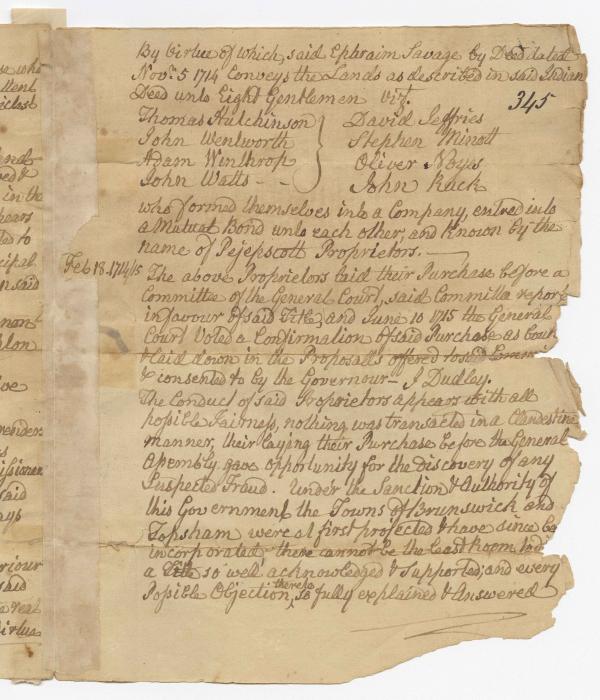 By Virtue of which, said Ephraim Savage by Deed dated
Novr. 5 1714 Conveys the Lands as described in said Indian
Deed unto Eight Gentlemen Vizt.
345
Thomas Hutchinson } David Jeffries
John Wentworth Stephen Minott
Adam Winthrop Oliver Noyes
John Watts - - John Ruck
who formed themselves into a Company, entred into
a Mutual Bond unto each other, and Known by the
name of Pejepscott Proprietors.
Feb 18. 1714/15 The above Proprietors laid their Purchase before a
Committee of the General Court, said Committee report
in favour of said Title, and June 10 1715 the General
Court Voted a Confirmation of said Purchase as
& laid down in the Proposalls offered
& consented to by the Governour - J Dudley.
The Conduct of said Proprietors appears with all
possible Fairness, nothing was transacted in a Clandestine
manner, their laying their Purchase before the General
Assembly gave opportunity for the discovery of any
Suspected Fraud. Under the Sanction & Authority of
this Government the Towns of Brunswick and
Topsham were at first projected & have since be
incorporated there cannot be the least Room
a Title so well acknowledged & Supported, and every
Possible Objection thereto so fully explained & Answered
se who
in the
hears
said
ive
said
ays
said